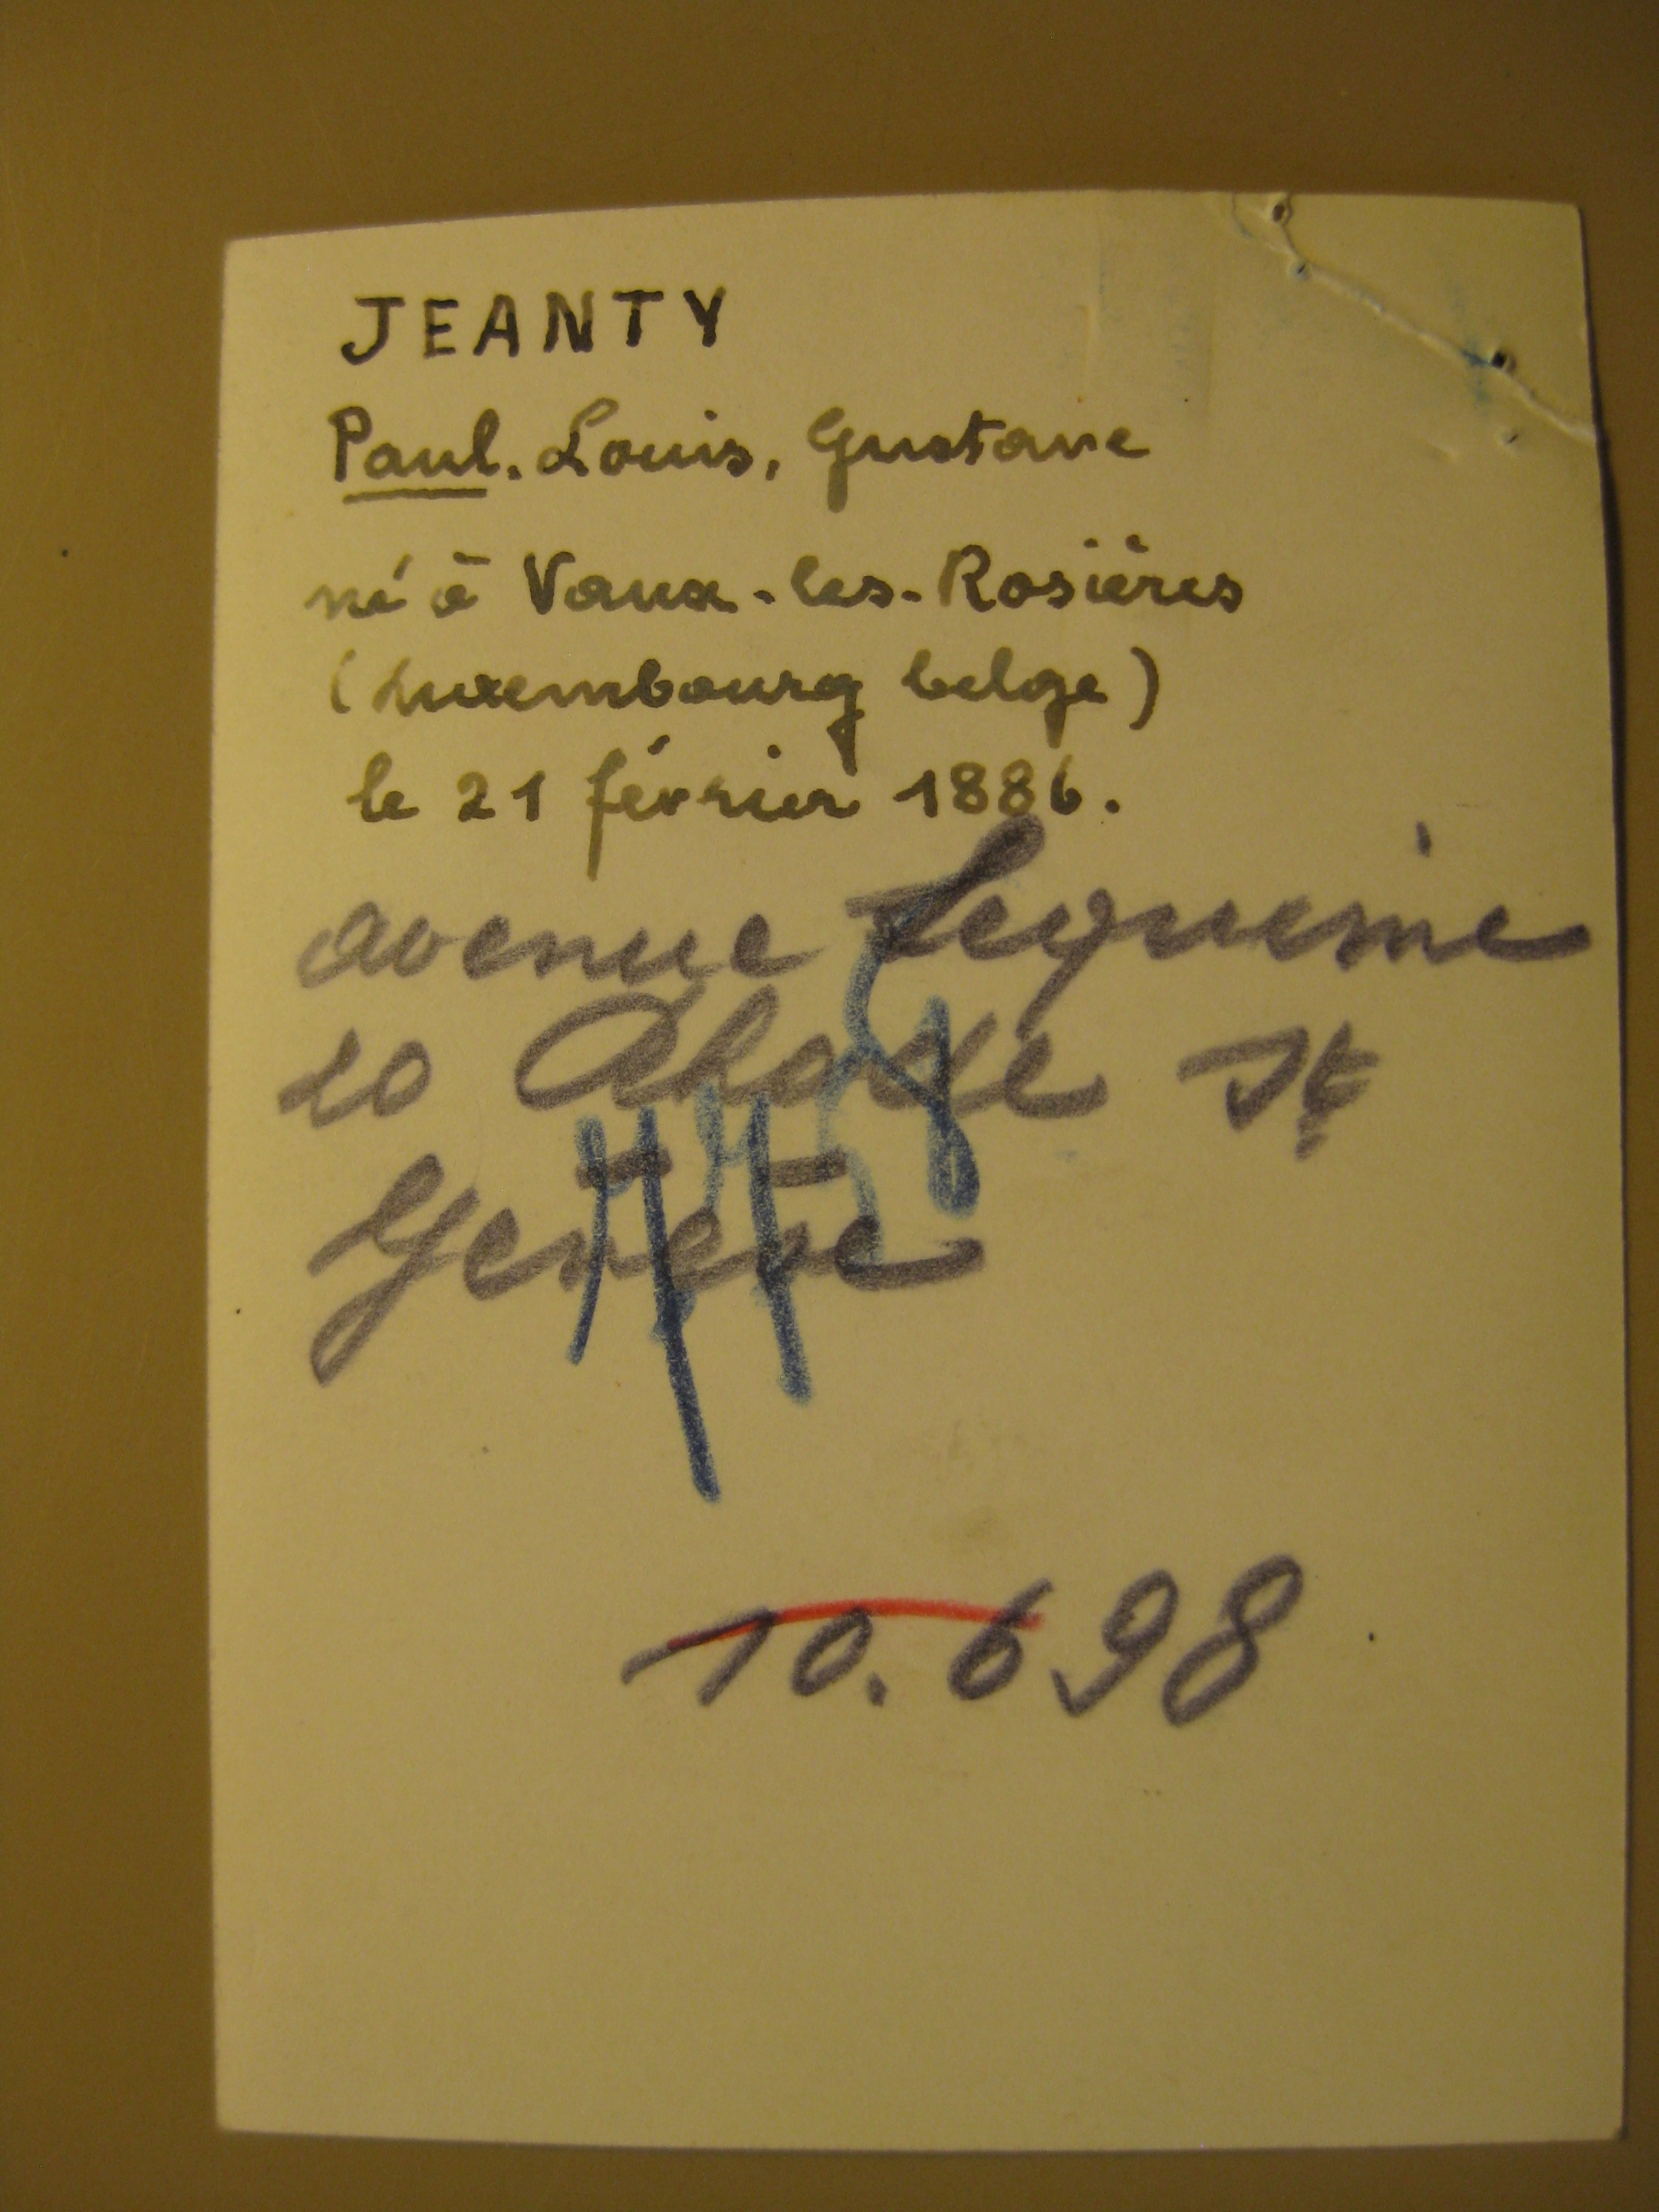 JEANTY
Paul. Louis, Gustave
né à Vaux-les-Rosières
(Luxembourg belge)
le 21 février 1886.
avenue Lequime
10 Rhode St
Genèse
10.698